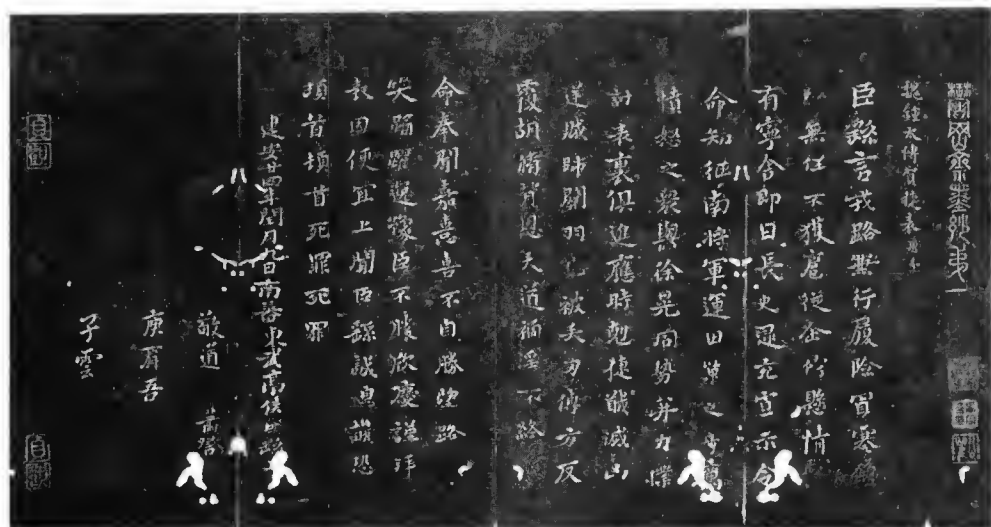 鬱岡齋墨妙第一
魏鍾太傅賀捷表
臣繇言戎路兼行履險冒寒臣
以無任不獲扈從企佇懸情無
有寧舍即日長史逯充宣示令
命知征南將軍運田單之奇厲
憤怒之衆與徐晃同勢并力撲
討表裏俱進應時剋捷馘滅凶
逆賊帥關羽已被矢刃傅方反
覆胡脩背恩天道禍淫不終厥
命奉聞嘉憙喜不自勝望路載
笑踊躍逸豫臣不勝欣慶謹拜
表因便宜上聞臣繇誠惶誠恐
頓首頓首死罪死罪
建安廿四年閏月九日南蕃東武亭侯臣繇上
敬道
庾肩吾
子雲
貞觀
貞觀